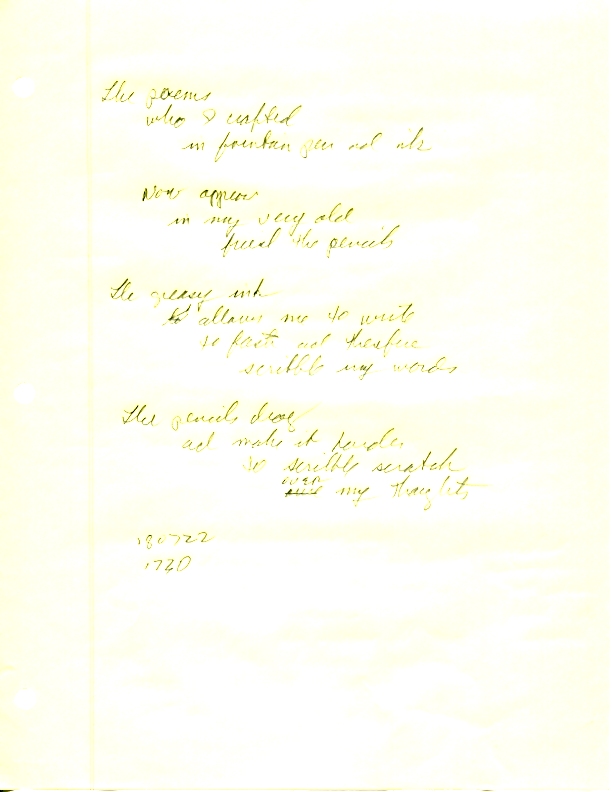 The poems
who I crafted
in fountain pen and ink
Now appear
in my very old
friend the pencils
The greasy ink
allows me to write
so fast and therefore
scribble my words
The pencils drag
and make it harder
to scribble scratch
over my thoughts
180722
1730